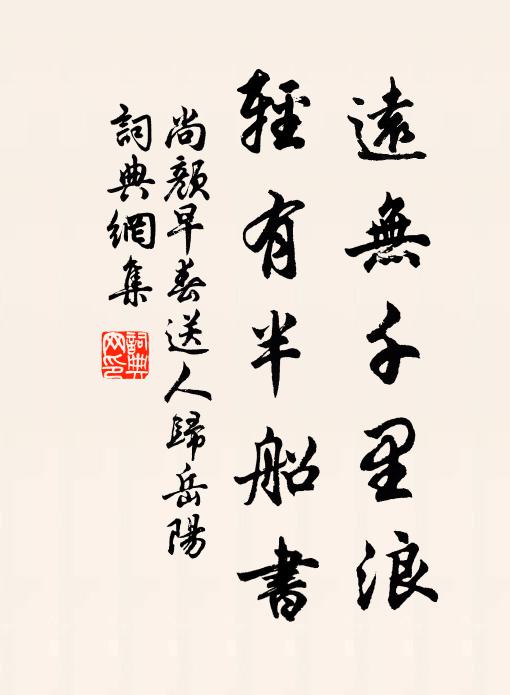 遠無千里浪
輕有半船書
尚顏早春送人歸岳陽
詞典網集
詞典
网印